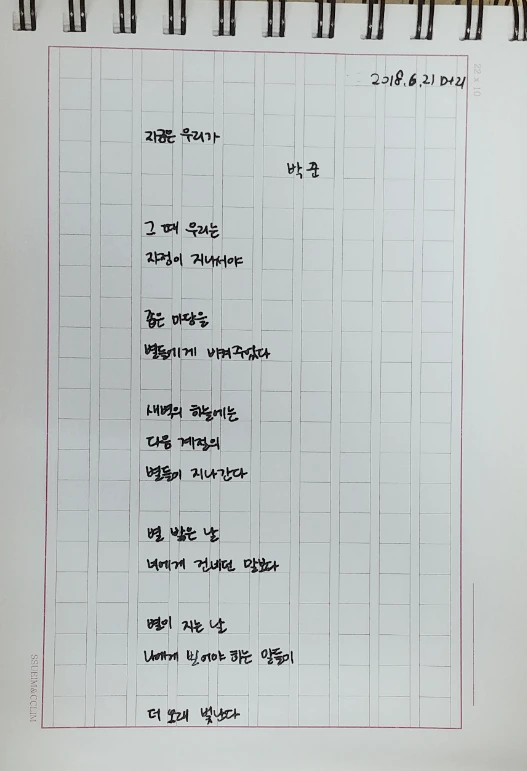 2018.6.21 D+21
22 × 10
지금은 우리가
박 준
그 때 우리는
자정이 지나서야
좁은 마당을
별들에게 비켜주었다
새벽의 하늘에는
다음 계절의
별들이 지나간다
별 밝은 날
너에게 건네던 말보다
별이 지는 날
나에게 빌어야 하는 말들이
더 오래 빛난다
SSUEIM&CCLIM